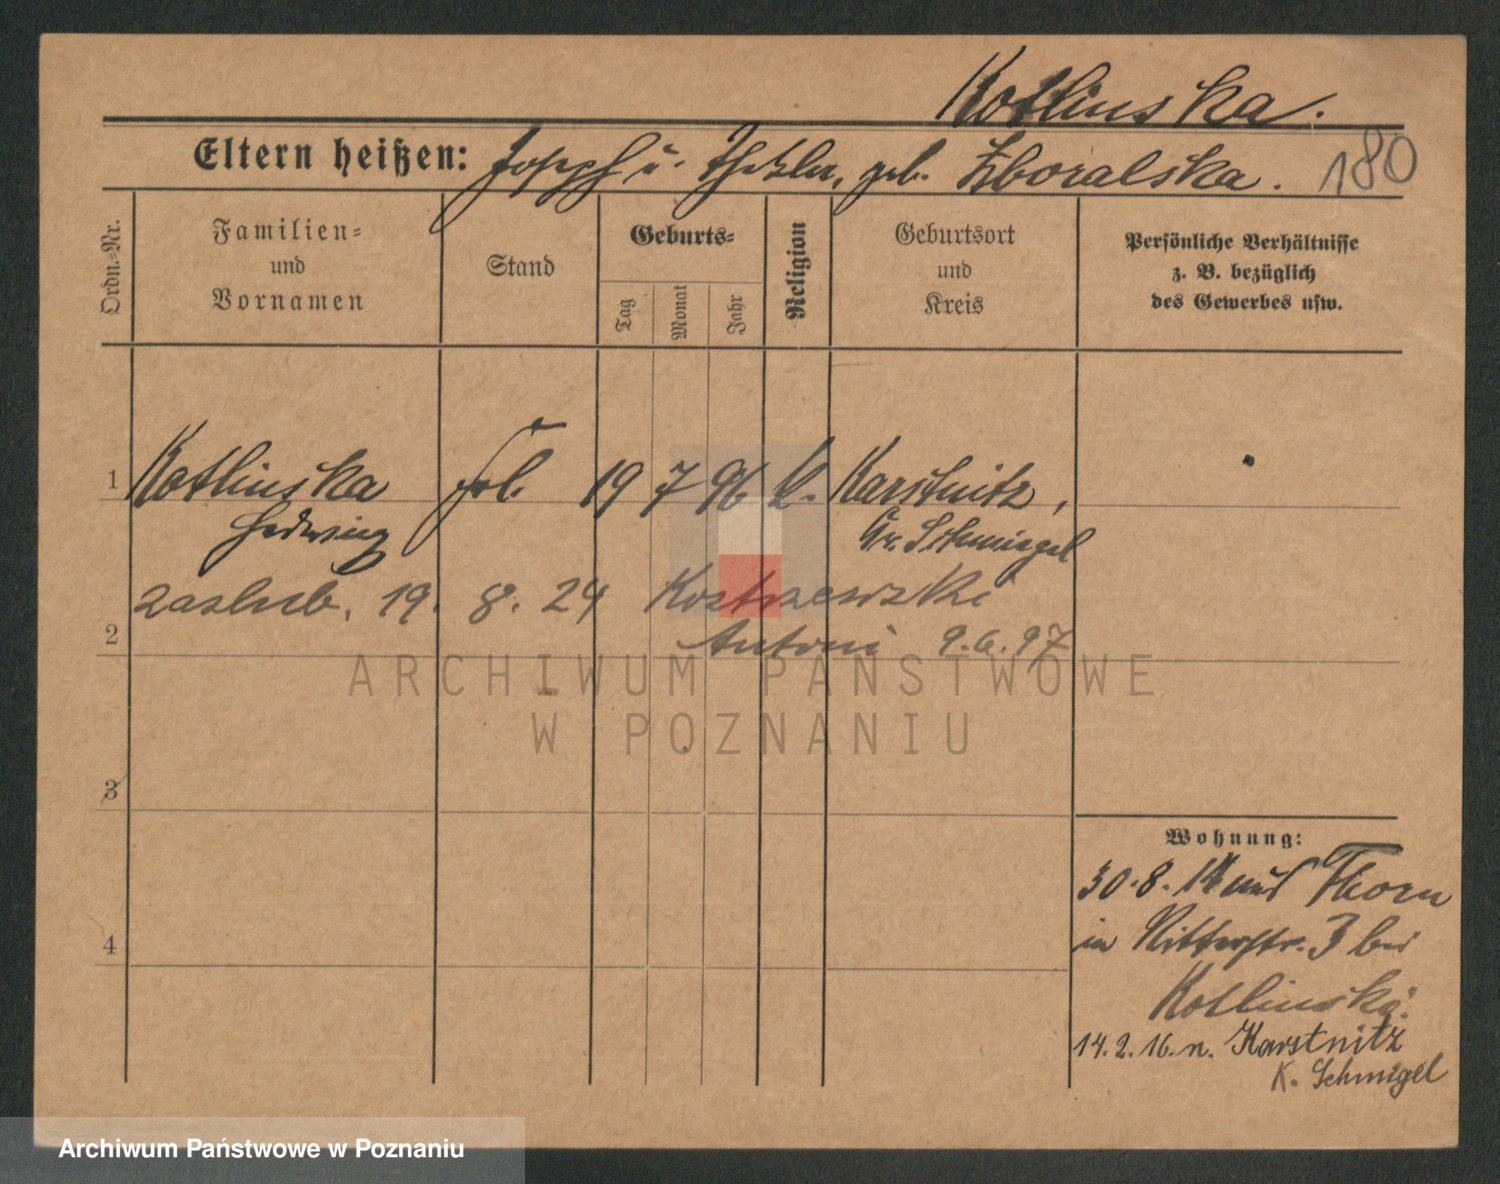 Kotlinska.
Eltern heißen: Joseph u. Thekla, geb. Zboralska.
180
Ordn.-Nr.
Familien-
und
Vornamen
Stand
Geburts-
Tag
Monat
Jahr
Religion
Geburtsort
und
Kreis
Persönliche Verhältnisse
z. B. bezüglich
des Gewerbes usw.
1 Kotlinska Frl. 19 7 96 k. Karstnitz,
Hedwig Kr. Schmiegel
zaslub. 19. 8. 24 Kostrzewski
2 Antoni 9.6.97
ARCHIWUM PAŃSTWOWE
W POZNANIU
3
4
Wohnung:
30.8.14 aus Thorn
in Ritterstr. 3 bei
Kotlinska.
14.2.16. n. Karstnitz
K. Schmigel
Archiwum Państwowe w Poznaniu